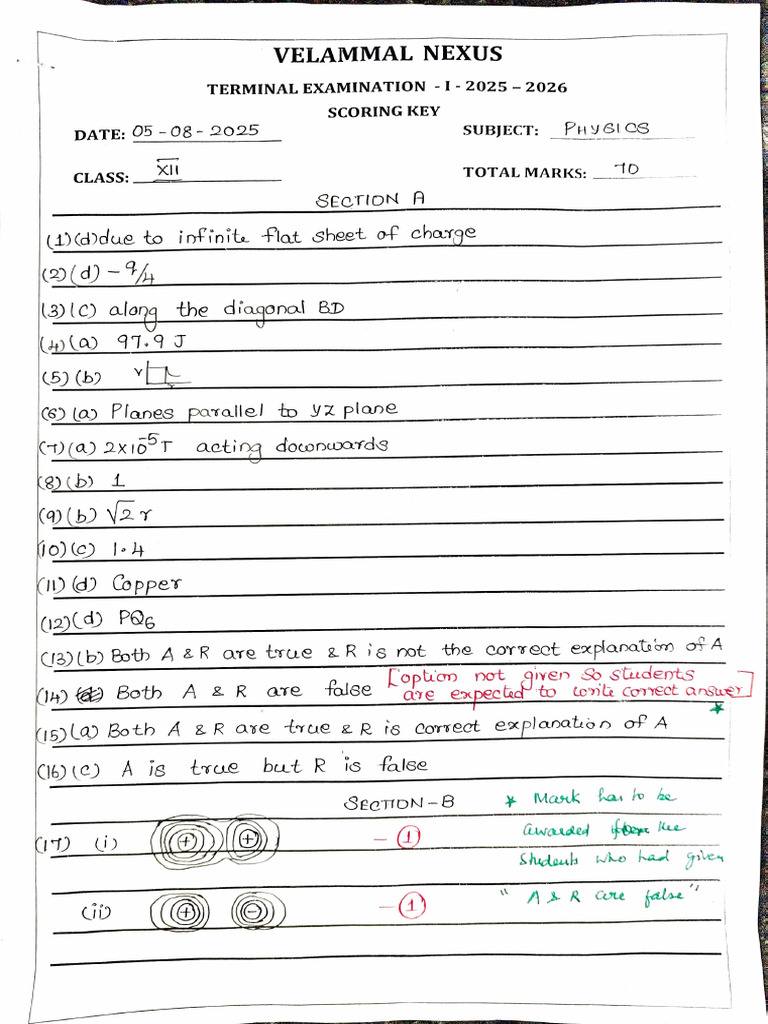 VELAMMAL NEXUS
TERMINAL EXAMINATION - I - 2025 – 2026
SCORING KEY
DATE: 05-08-2025 SUBJECT: PHYSICS
CLASS: XII TOTAL MARKS: 70
SECTION A
(1)(d)due to infinite flat sheet of charge
(2)(d) -q/4
(3)(c) along the diagonal BD
(4)(a) 97.9 J
(5)(b) V
(6)(a) Planes parallel to yz plane
(7)(a) 2×10⁻⁵T acting downwards
(8)(b) 1
(9)(b) √2 r
(10)(c) 1.4
(11)(d) Copper
(12)(d) PQ₆
(13)(b) Both A & R are true & R is not the correct explanation of A
[option not given so students
(14) Both A & R are false are expected to write correct answer]
*
(15)(a) Both A & R are true & R is correct explanation of A
(16)(c) A is true but R is false
SECTION-B * Mark has to be
(17) (i) + + - (1) awarded for the
Students who had given
(ii) + - - (1) "A & R are false"